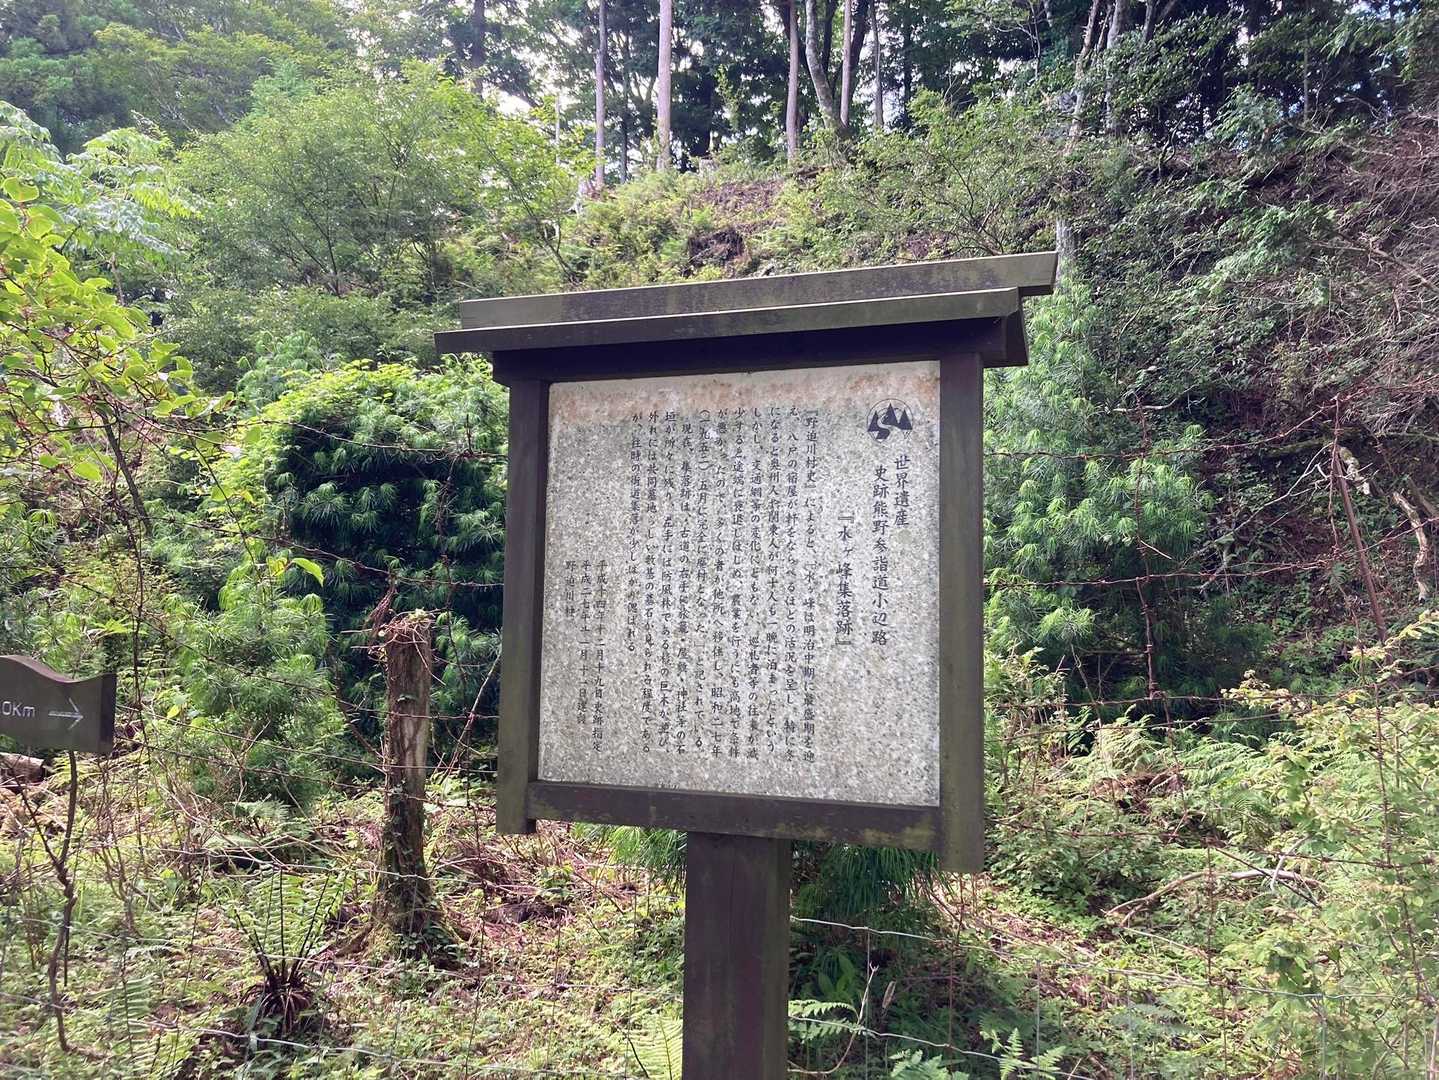 世界遺産
史跡熊野参詣道小辺路
『水ヶ峰集落跡』
『野迫川村史』によると、「水ヶ峰は明治中期に最盛期を迎
え、八戸の宿屋が軒をならべるほどの活況を呈し、特に冬
になると奥州人や関東人が何十人も一晩に泊まったという
しかし、交通網等の変化にともない、巡礼者等の往来が減
少すると途端に衰退しはじめ、農業を行うにも高地で条件
が悪かったので、多くの者が他所へ移住し、昭和二七年
(一九五二)五月に完全に廃村となった。」と記されている。
現在、集落跡は、古道の右手に
屋敷、神社等の石
垣が所々に残り、左手には防風林である杉の巨木が並び、
外れには共同墓地らしい数基の墓石が見られる程度である
が、往時の街道集落が少しばかり偲ばれる。
平成十四年十二月十九日史跡指定
平成二七年十一月十一日建設
野迫川村
0Km